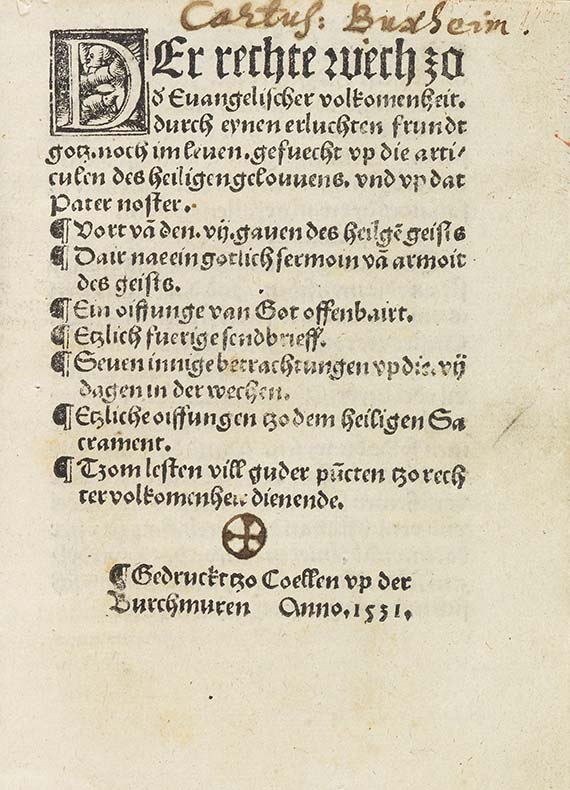 Cartus: Buxheim.
DEr rechte wech zo
d Euangelischer volkomenheit.
durch eynen erluchten frundt
gotz. noch im leuen. gesuecht vp die arti⸗
culen des heiligen gelouuens. vnd vp dat
Pater noster.
¶ Vort vā den. vij. gauen des heilgē geists
¶ Dair nae ein gotlich sermoin vā armoit
des geists.
¶ Ein oiffunge van Got offenbairt.
¶ Etzlich fuerige sendbrieff.
¶ Seuen innige betrachtungen vp die. vij
dagen in der wechen.
¶ Etzliche oiffungen tzo dem heiligen Sa
crament.
¶ Tzom lesten vill guder pūcten tzo rech
ter volkomenheit dienende.
¶ Gedruckt tzo Coellen vp der
Burchmuren Anno. 1531.